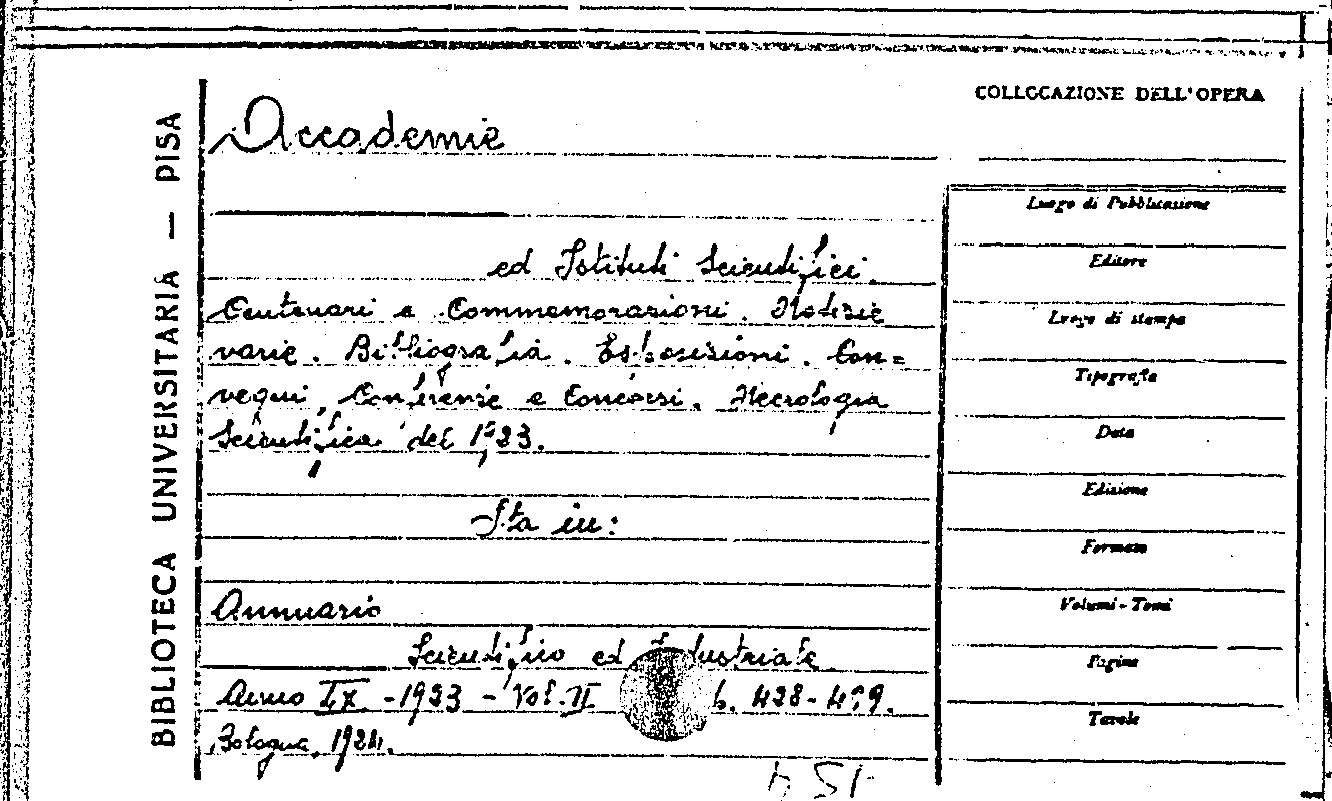 COLLOCAZIONE DELL'OPERA
BIBLIOTECA UNIVERSITARIA — PISA
Accademie
ed Istituti Scientifici.
Centenari e Commemorazioni. Notizie
varie. Bibliografia. Esposizioni. Con=
vegni, Conferenze e Concorsi. Necrologia
Scientifica del 1923.
Sta in:
Annuario
Scientifico ed Industriale
Anno LX - 1923 - Vol. II p. 428-
Bologna, 1924.
Luogo di Pubblicazione
Editore
Luogo di stampa
Tipografia
Data
Edizione
Formato
Volumi - Tomi
Pagine
Tavole